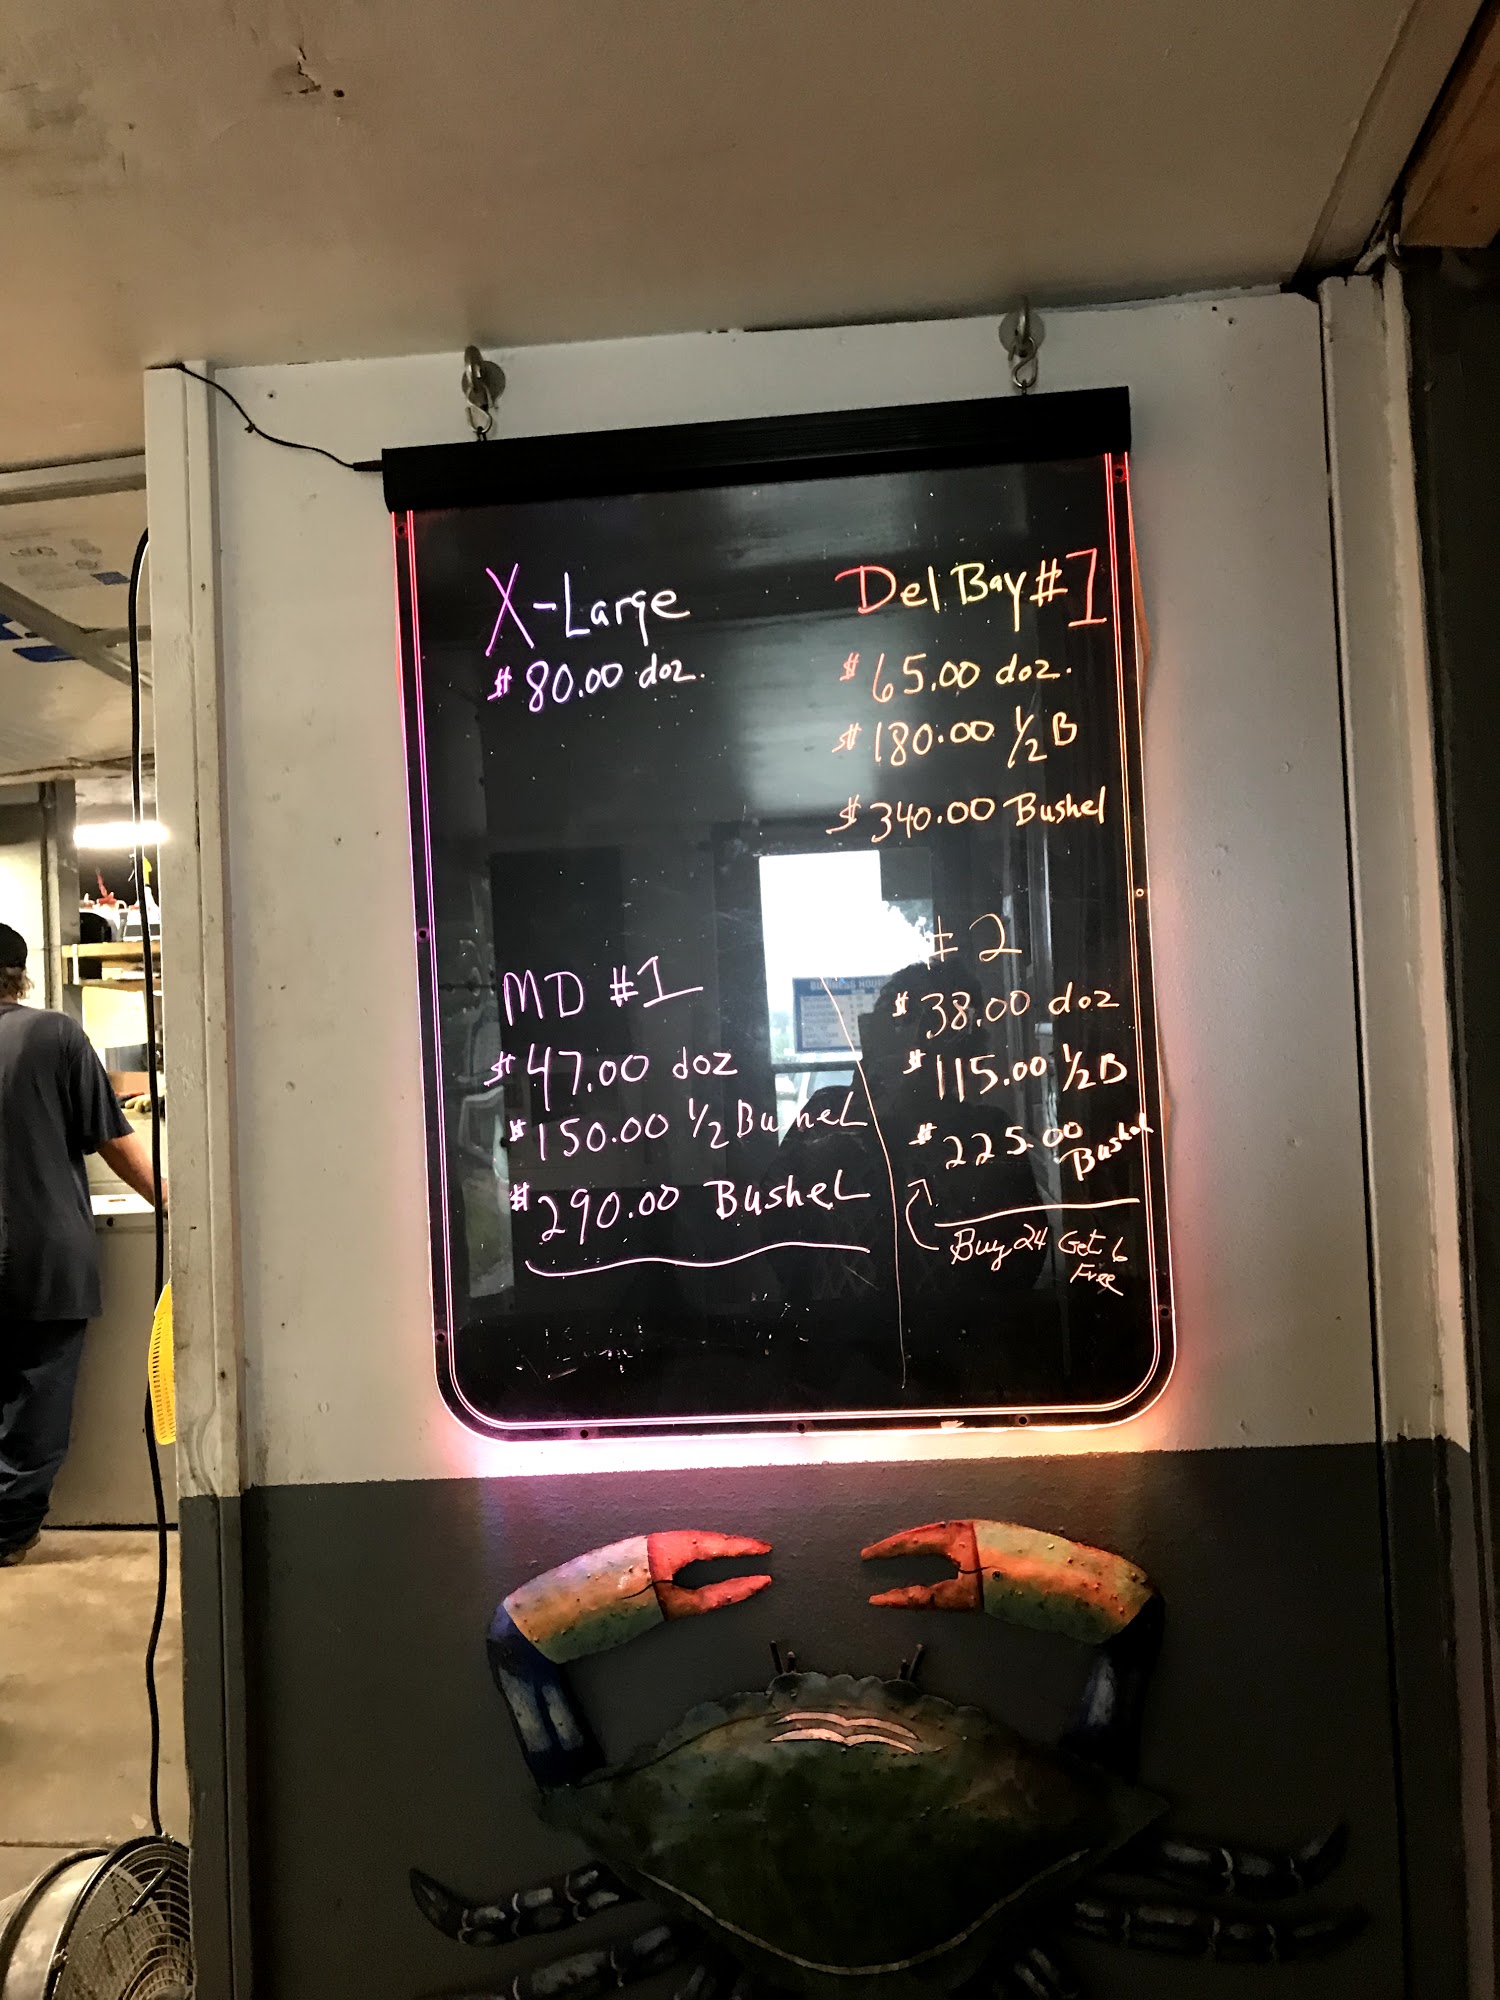 X-Large
$80.00 doz.
Del Bay #1
$65.00 doz.
$180.00 1/2 B
$340.00 Bushel
MD #1
$47.00 doz
$150.00 1/2 Bushel
$290.00 Bushel
# 2
$38.00 doz
$115.00 1/2 B
$225.00 Bushel
Buy 24 Get 6
Free
BUSINESS HOURS